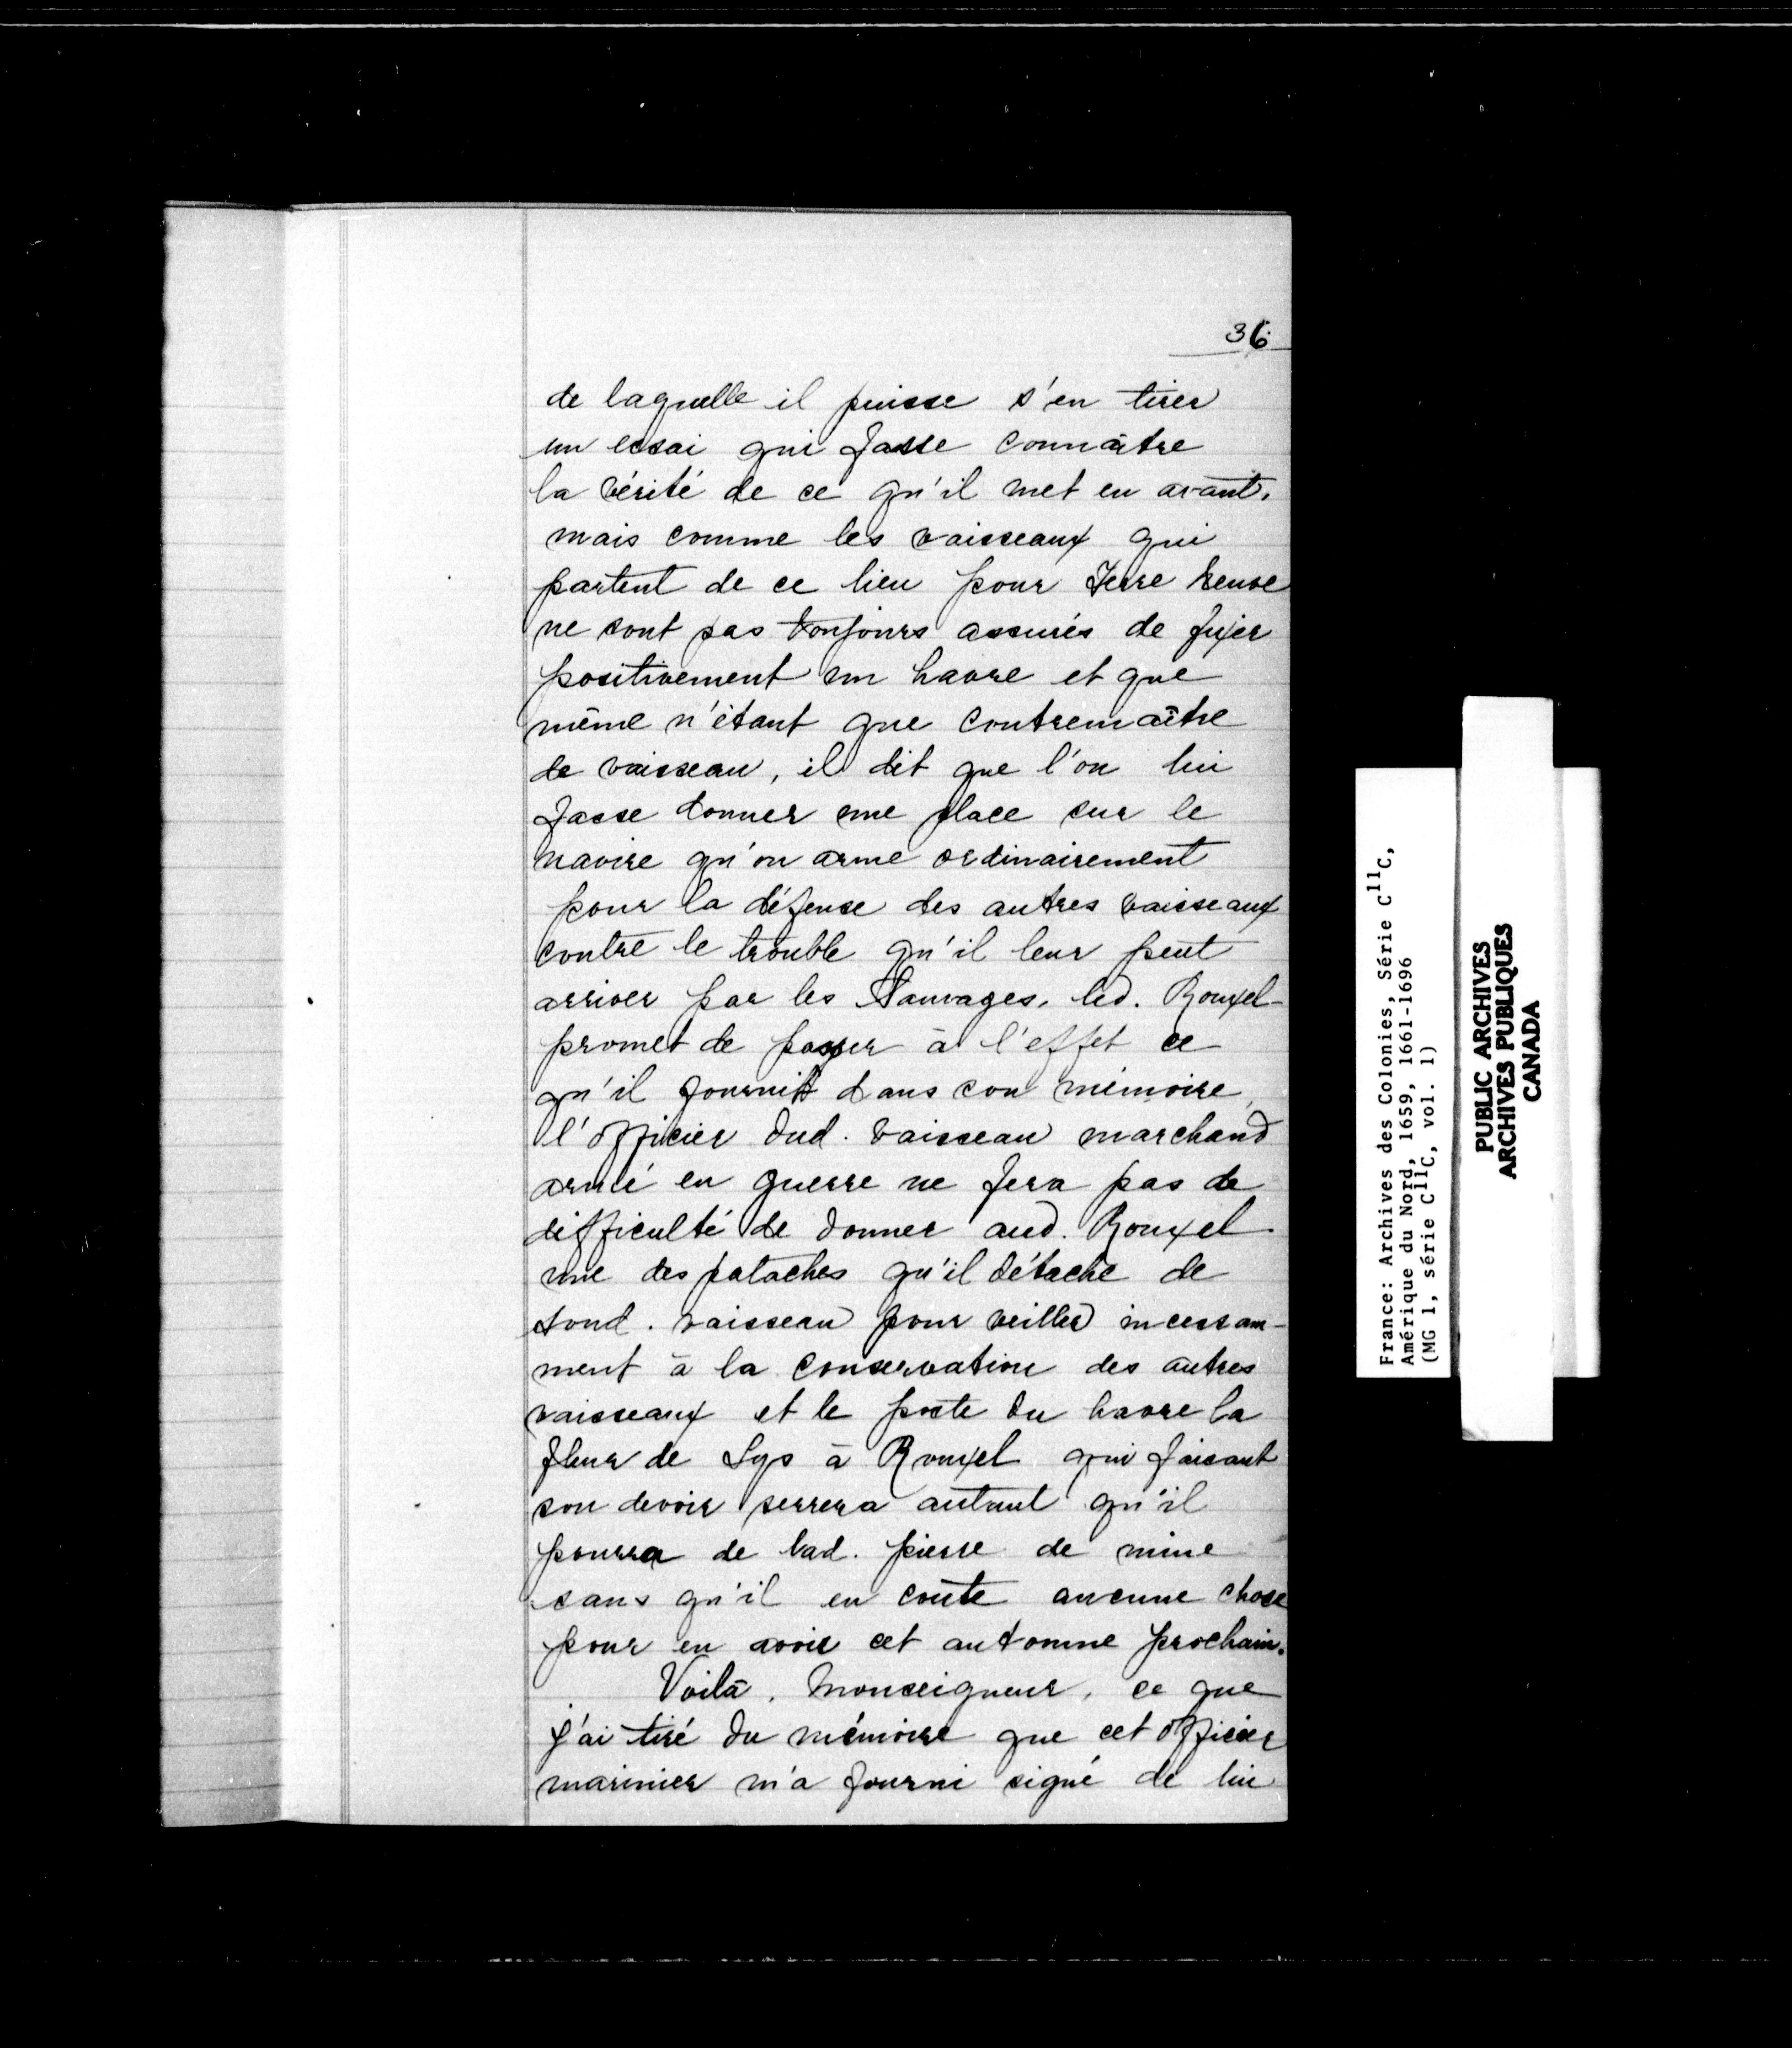 36
de laquelle il puisse s'en tirer
un essai qui fasse connaître
la vérité de ce qu'il met en avant.
mais comme les vaisseaux qui
partent de ce lieu pour Terre neuve
ne sont pas toujours assurés de fixer
positivement un havre et que
même n'étant que contremaître
de vaisseau, il dit que l'on lui
fasse donner une place sur le
navire qu'on arme ordinairement
pour la défense des autres vaisseaux
contre le trouble qu'il leur peut
arriver par les Sauvages. led. Rouxel
promet de passer à l'effet ce
qu'il fournit dans son mémoire,
l'officier dud. vaisseau marchand
armé en guerre ne fera pas de
difficulté de donner aud. Rouxel
une des pataches qu'il détache de
sond. vaisseau pour veiller incessam-
ment à la conservation des autres
vaisseaux et le poste du havre la
fleur de Lys à Rouxel qui faisant
son devoir serrera autant qu'il
pourra de lad. pierre de mine
sans qu'il en coûte aucune chose
pour en avoir cet automne prochain.
Voilà, Monseigneur, ce que
j'ai tiré du mémoire que cet officier
marinier m'a fourni signé de lui
France: Archives des Colonies, Série C11C,
Amérique du Nord, 1659, 1661-1696
(MG 1, série C11C, vol. 1)
PUBLIC ARCHIVES
ARCHIVES PUBLIQUES
CANADA